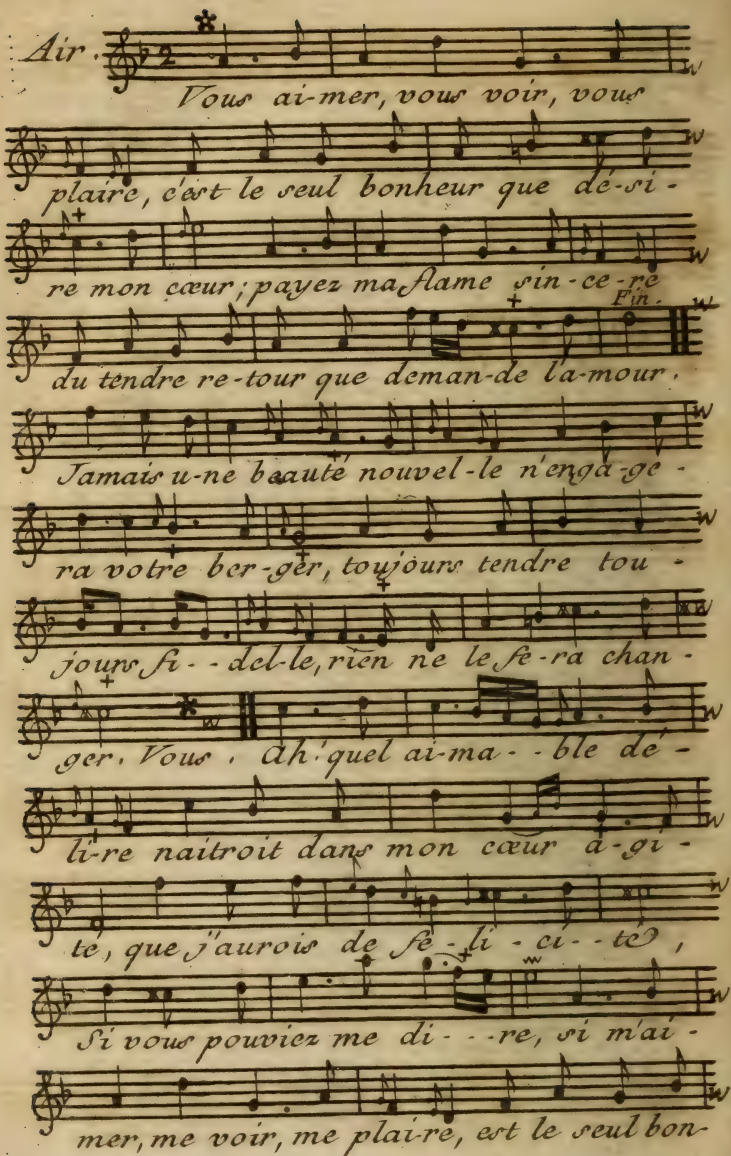 Air.
Vous ai-mer, vous voir, vous
plaire, c'est le seul bonheur que dé-si-
re mon cœur; payez ma flame sin-ce-re
Fin.
du tendre re-tour que deman-de l'a-mour.
Jamais u-ne beauté nouvel-le n'enga-ge-
ra votre ber-ger, toujours tendre tou-
jours fi--del-le, rien ne le fe-ra chan-
ger. Vous. Ah! quel ai-ma--ble dé-
li-re naitroit dans mon cœur a-gi-
té, que j'aurois de fé-li-ci--té,
Si vous pouviez me di---re, si m'ai-
mer, me voir, me plai-re, est le seul bon-